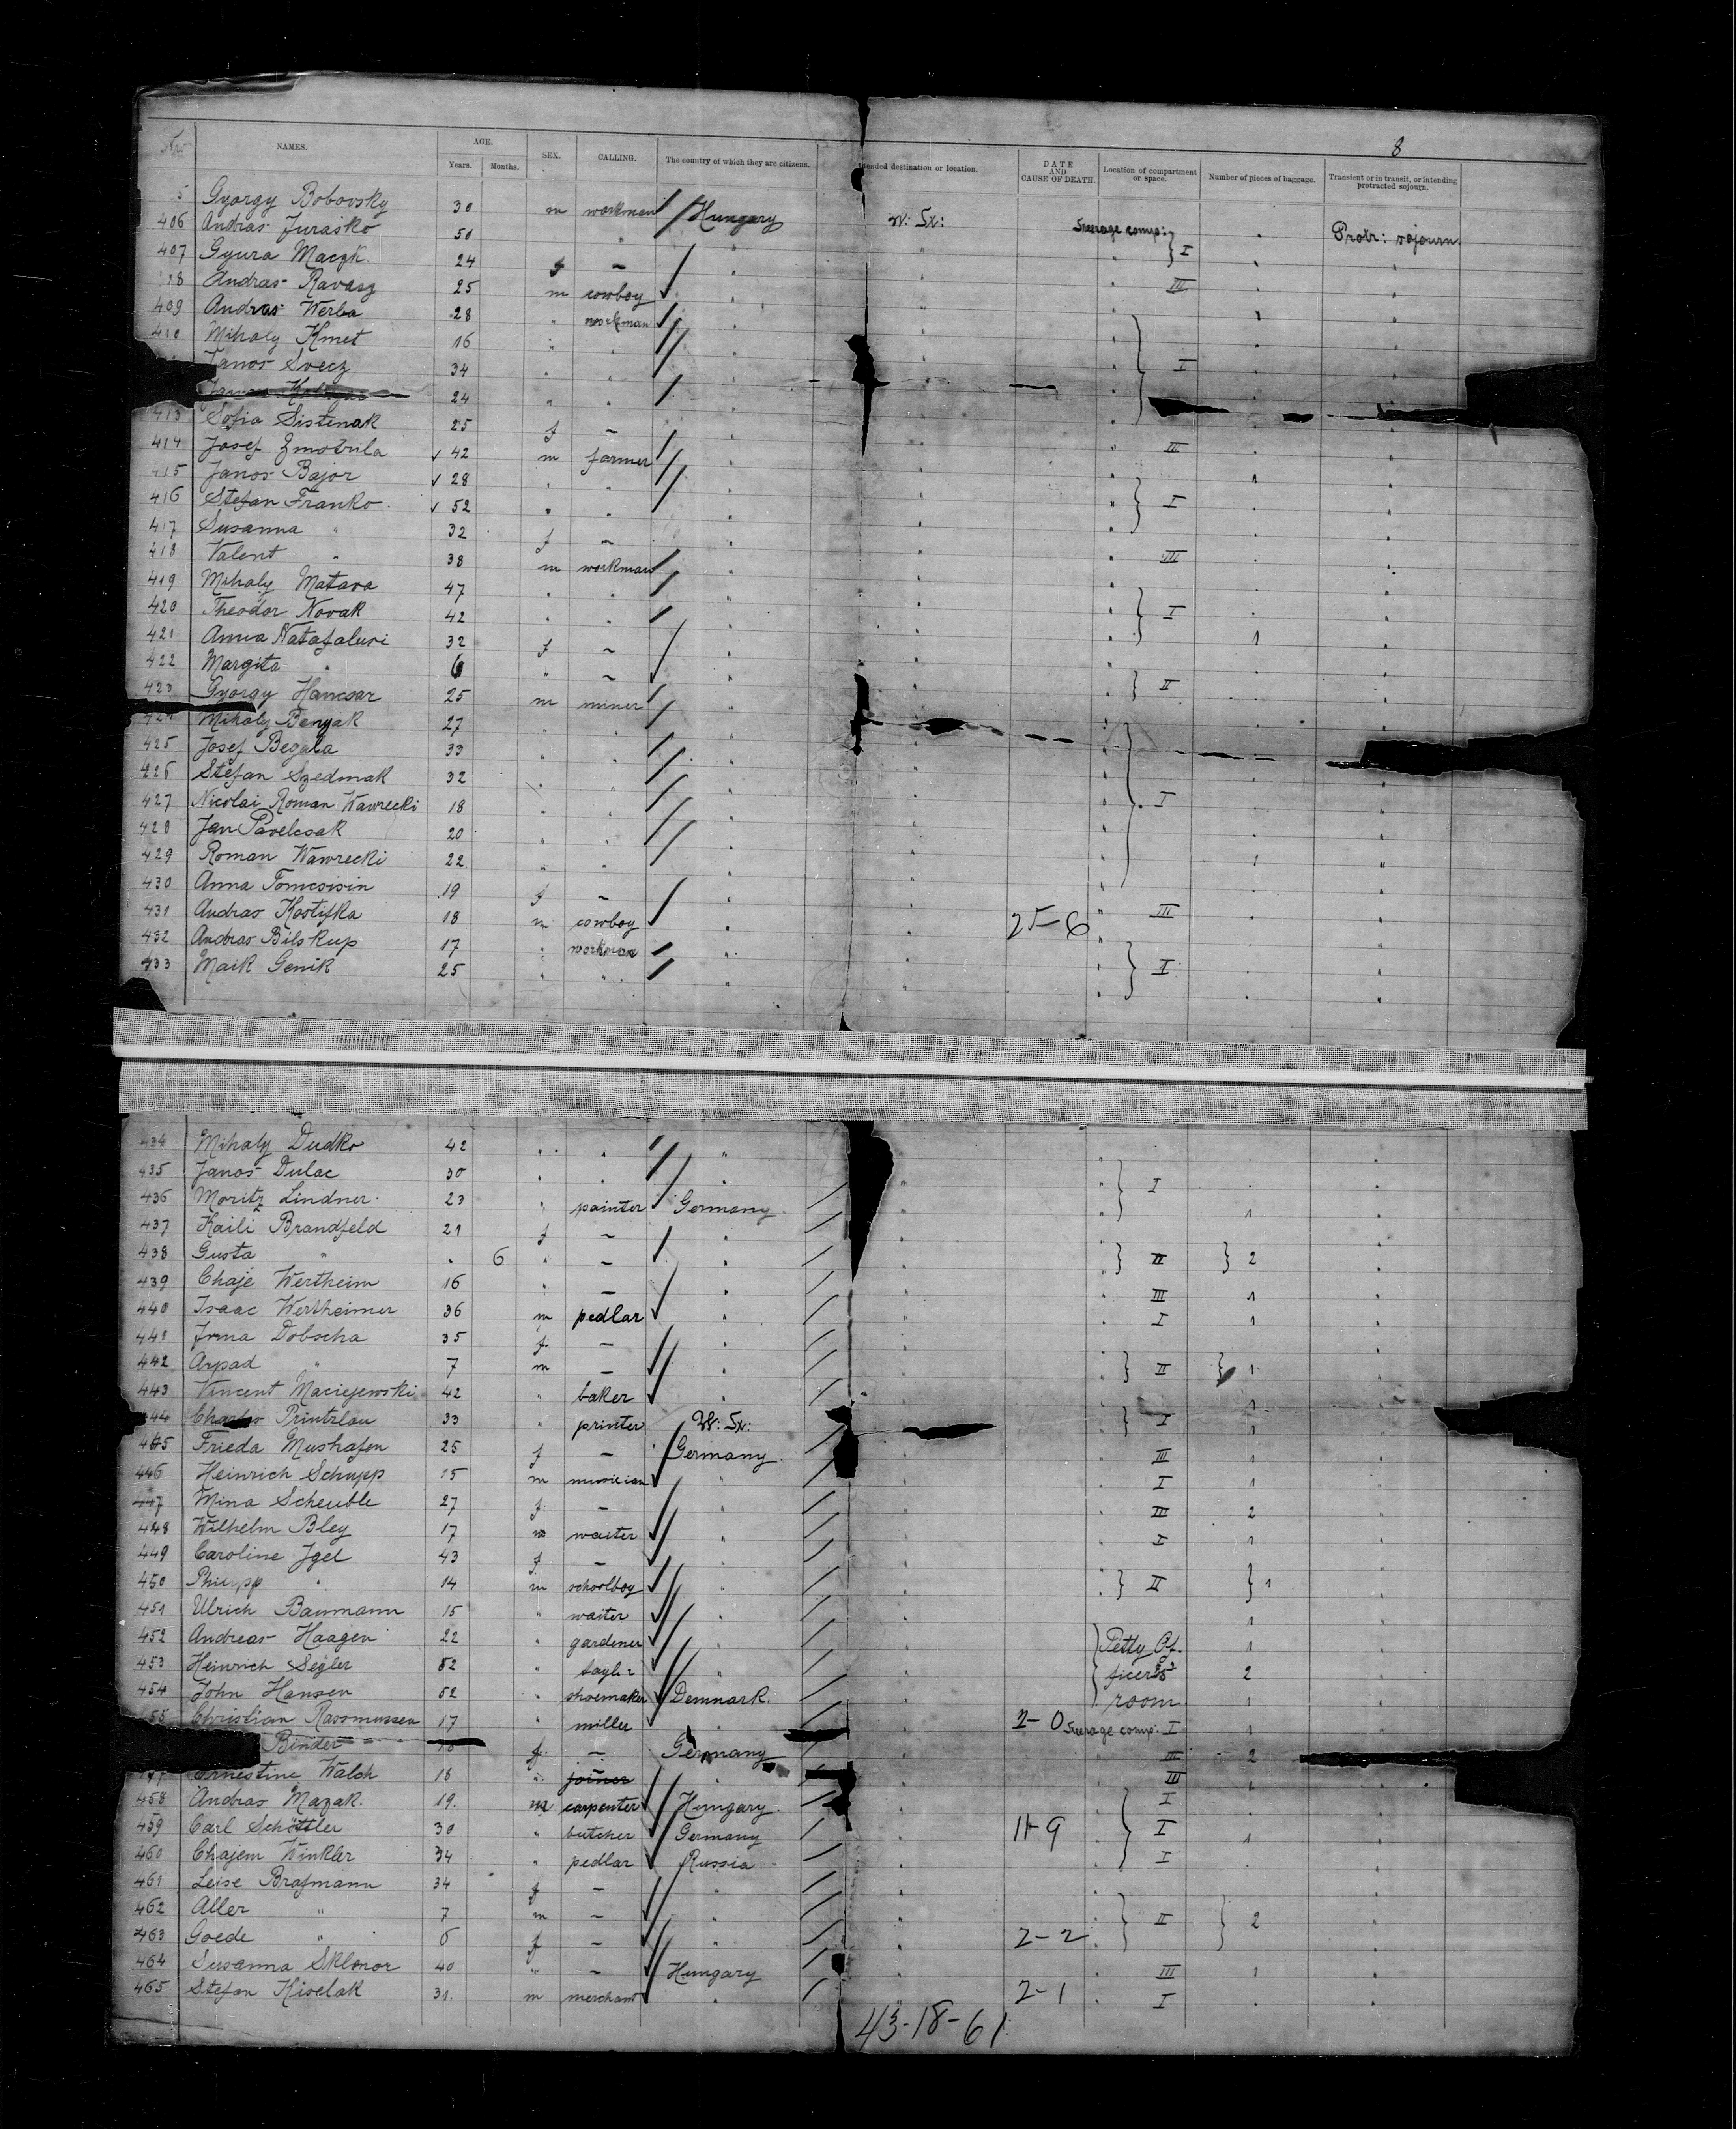 8
No NAMES. AGE. Years. Months. SEX. CALLING. The country of which they are citizens. Intended destination or location. DATE AND CAUSE OF DEATH. Location of compartment or space. Number of pieces of baggage. Transient or in transit, or intending protracted sojourn.
5 Gyorgy Bobovsky 30 m workman Hungary W: Sx: Steerage comp: Protr: sojourn
406 Andras Jurasko 50 " I
407 Gyura Maczk 24 f –
408 Andras Ravasz 25 m cowboy III
409 Andras Werba 28 " workman 1
410 Mihaly Kmet 16 " "
Janos Svecz 34 " " I
24 " "
413 Sofia Sistenak 25 f –
414 Josef Zmotrila 42 m farmer III
415 Janos Bajor 28 " " 1
416 Stefan Franko 52 " " I
417 Susanna " 32 f –
418 Valent " 38 m workman III
419 Mihaly Matava 47 " "
420 Theodor Novak 42 " " I
421 Anna Natafalusi 32 f – 1
422 Margita " 6 " –
423 Gyorgy Hamcsar 25 m miner II
424 Mihaly Benyak 27 " "
425 Josef Begala 33 " "
426 Stefan Szedmak 32 " "
427 Nicolai Roman Wawrecki 18 " " I
428 Jan Pavelcsak 20 " "
429 Roman Wawrecki 22 " " 1
430 Anna Tomcsisin 19 f –
431 Andras Kostifka 18 m cowboy 25-6 III
432 Andras Bilskup 17 " workman
433 Maik Genik 25 " " I
434 Mihaly Dudko 42 " " "
435 Janos Dulac 30 " " " I
436 Moritz Lindner 23 " painter Germany 1
437 Kaili Brandfeld 21 f – "
438 Gusta " " 6 " – II 2
439 Chaje Wertheim 16 " – " III 1
440 Isaac Wertheimer 36 m pedlar " I 1
441 Irma Dobscha 35 f – "
442 Arpad " 7 m – " II 1
443 Vincent Maciejewski 42 " baker " 1
444 Charles Printzlau 33 " printer W: Sx: I 1
445 Frieda Mushafen 25 f – Germany III 1
446 Heinrich Schupp 15 m musician " I 1
447 Mina Scheuble 27 f – " III 2
448 Wilhelm Bley 17 m waiter " I 1
449 Caroline Igel 43 f – "
450 Philipp " 14 m schoolboy " II 1
451 Ulrich Baumann 15 " waiter " 1
452 Andreas Haagen 22 " gardener " Petty Of- 1
453 Heinrich Segler 52 " " ficers 2
454 John Hansen 52 " shoemaker Denmark room 1
455 Christian Rassmussen 17 " miller " 2-0 Steerage comp: I 1
Binder 18 f – Germany III 2
457 Ernestine Walch 18 " joiner " III
458 Andras Mazak 19 m carpenter Hungary I
459 Carl Schöttler 30 " butcher Germany 11-9 I 1
460 Chajem Winkler 34 " pedlar Russia I
461 Leise Brafmann 34 f – "
462 Aller " 7 m – " II 2
463 Goede " 6 f – " 2-2
464 Susanna Sklenor 40 " – Hungary III 1
465 Stefan Kiselak 31 m merchant " 2-1 I
43-18-61